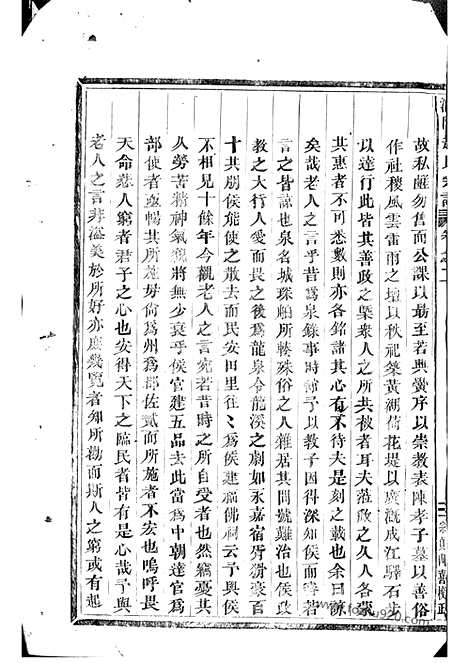 故私鹺勿售而公課以最至若興黌序以崇教表陳孝子墓以善俗
作社稷風雲雷雨之壇以秋祀築黄湖荷花堤以廣漑成江驛石步
以達行此皆其善政之槩衆人之所共被者耳夫蒞政之久人各蒙
其惠者不可悉數則亦各銘諸其心有不待夫是刻之載也余曰
矣哉老人之言乎昔爲泉錄事時師予以教子因得深知侯而寄若
言之皆諒也泉名城琛舶所輳殊俗之人雜居其間號難治也侯以
教之大行人愛而畏之後爲龍泉令龍溪之劇如永嘉宿猾豪首
十其朋侯能使之散去而民安田里往〻爲侯建祠佛祠云予與侯
不相見十餘年今觀老人之言宛若昔時之所自受者也然竊憂其
人勞苦精神氣貌將無少衰乎侯官建五品去此當爲中朝達官爲
部使者逾暢其所施毋尙爲州爲郡佐貳而所施者不也嗚呼畏
天命悲人窮者君子之心也安得天下之臨民者皆有是心哉予與
老人之言非溢美於所好亦庶幾覽者知所勸而斯人之窮或有起